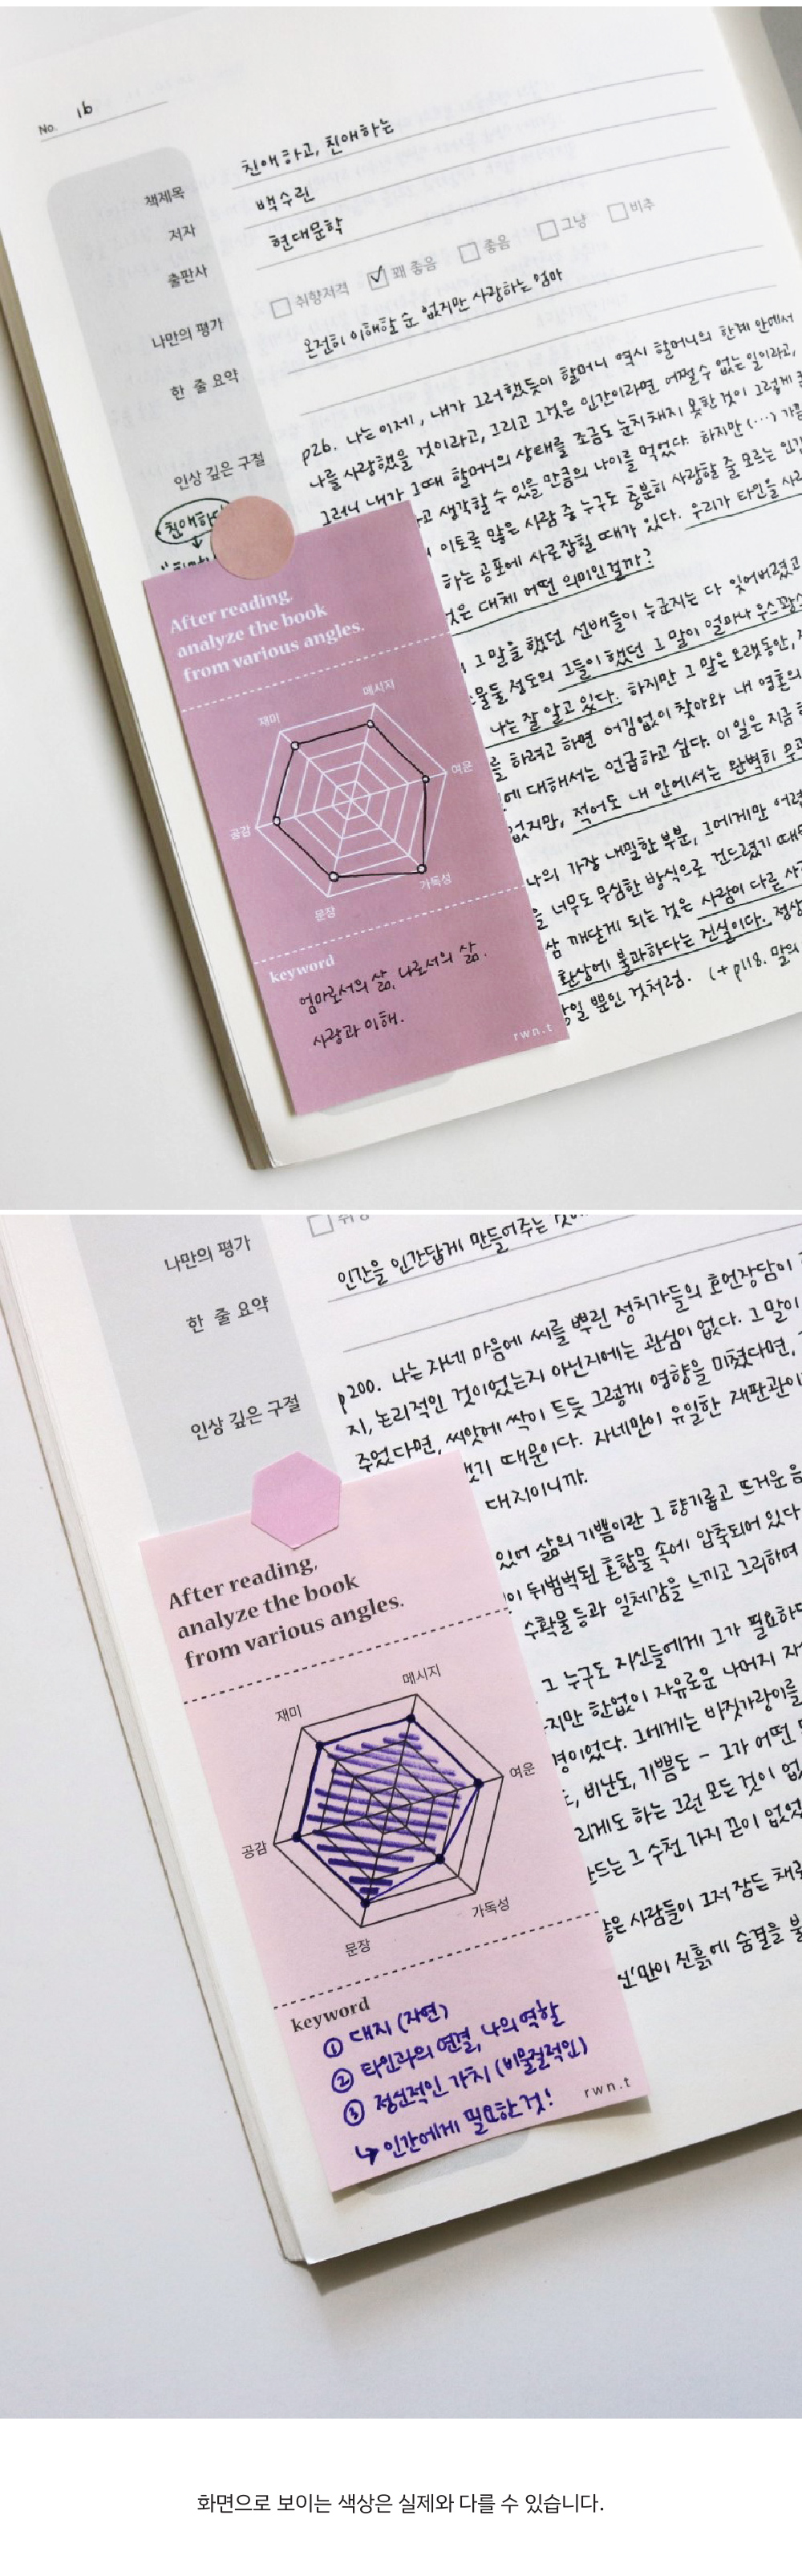 No. 16
책제목 친애하고, 친애하는
저자 백수린
출판사 현대문학
나만의 평가 취향저격 꽤 좋음 좋음 그냥 비추
한 줄 요약 온전히 이해할 순 없지만 사랑하는 엄마
인상 깊은 구절
p26. 나는 이제, 내가 그러했듯이 할머니 역시 할머니의 한계 안에서
나를 사랑했을 것이라고, 그리고 그것은 인간이라면 어쩔 수 없는 일이라고,
그러니 내가 그때 할머니의 상태를 조금도 눈치채지 못한 것이 그렇게
고 생각할 수 있을 만큼의 나이를 먹었다. 하지만 (…) 가끔
이토록 많은 사람 중 누구도 충분히 사랑할 줄 모르는 인간
하는 공포에 사로잡힐 때가 있다. 우리가 타인을 사
것은 대체 어떤 의미인걸까?
그 말을 했던 선배들이 누군지는 다 잊어버렸고
정도의 그들이 했던 그 말이 얼마나 우스꽝스
나는 잘 알고 있다. 하지만 그 말은 오랫동안,
를 하려고 하면 어김없이 찾아와 내 영혼의
에 대해서는 언급하고 싶다. 이 일은 지금
없지만, 적어도 내 안에서는 완벽히
나의 가장 내밀한 부분, 그에게만
을 너무도 무심한 방식으로 건드렸기 때문
삶 깨닫게 되는 것은 사람이 다른
환상에 불과하다는 진실이다. 정상
일 뿐인 것처럼. (+ p118. 말의
친애하다
After reading,
analyze the book
from various angles.
메시지
재미
여운
공감
가독성
문장
keyword
엄마로서의 삶, 나로서의 삶.
사랑과 이해.
rwn.t
나만의 평가
한 줄 요약 인간을 인간답게 만들어주는
인상 깊은 구절
p200. 나는 자네 마음에 씨를 뿌린 정치가들의 호언장담이
지, 논리적인 것이었는지 아닌지에는 관심이 없다. 그 말이
주었다면, 씨앗에 싹이 트듯 그렇게 영향을 미쳤다면,
했기 때문이다. 자네만이 유일한 재판관이
대지이니까.
있어 삶의 기쁨이란 그 향기롭고 뜨거운 음
이 뒤범벅된 혼합물 속에 압축되어 있다
수확물 등과 일체감을 느끼고 그리하여
그 누구도 자신들에게 그가 필요하
지만 한없이 자유로운 나머지
경이었다. 그에게는 바짓가랑이를
비난도, 기쁨도 - 그가 어떤
리게도 하는 그런 모든 것이
만드는 그 수천 가지 끈이 없었
많은 사람들이 그저 잠든 채로
신'만이 진흙에 숨결을
After reading,
analyze the book
from various angles.
메시지
재미
여운
공감
가독성
문장
keyword
① 대지 (자연)
② 타인과의 연결, 나의 역할
③ 정신적인 가치 (비물질적인)
↳ 인간에게 필요한 것!
rwn.t
화면으로 보이는 색상은 실제와 다를 수 있습니다.